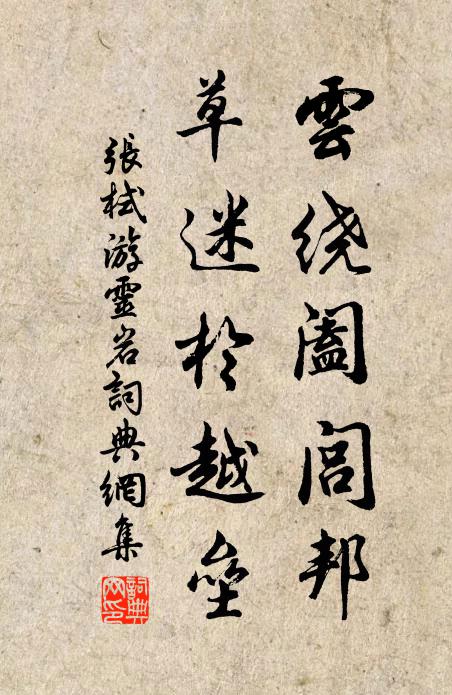 雲绕阖闾邦
草迷於越壘
張栻游靈岩詞典網集
詞典网印